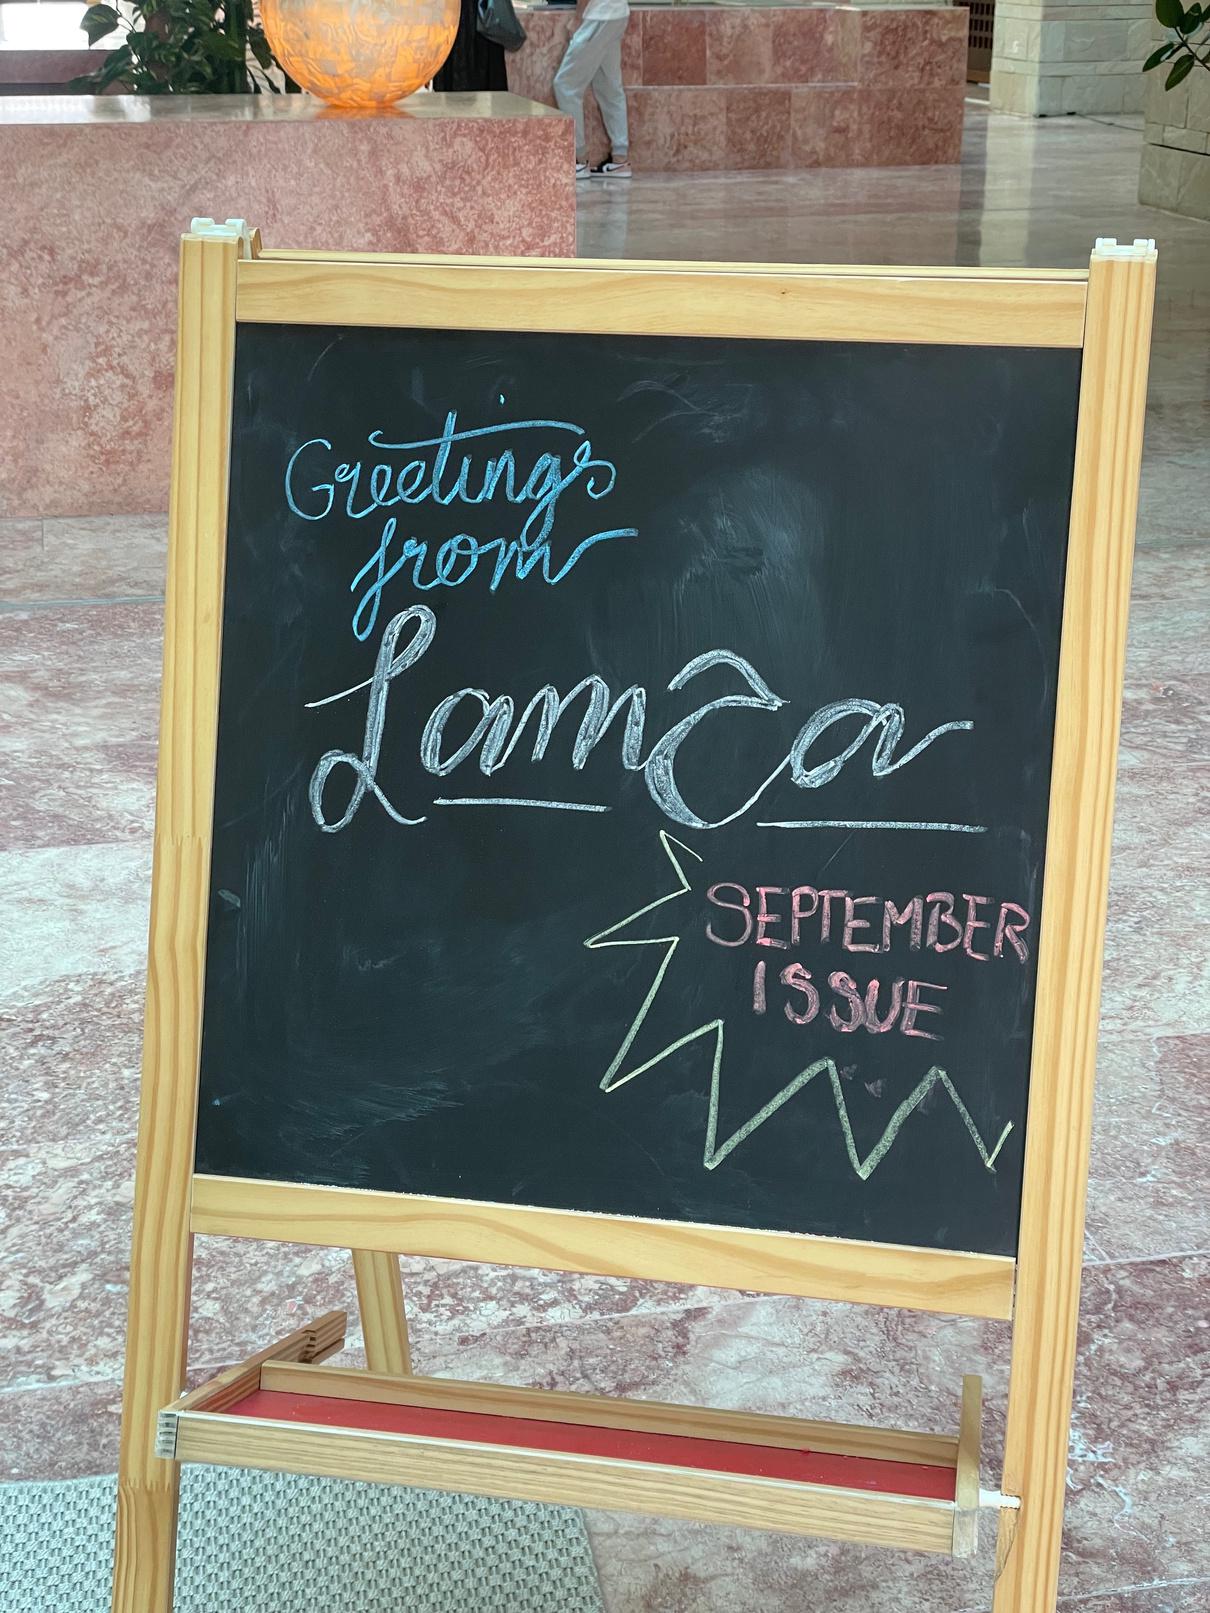 Greetings
from
Lamca
SEPTEMBER
ISSUE